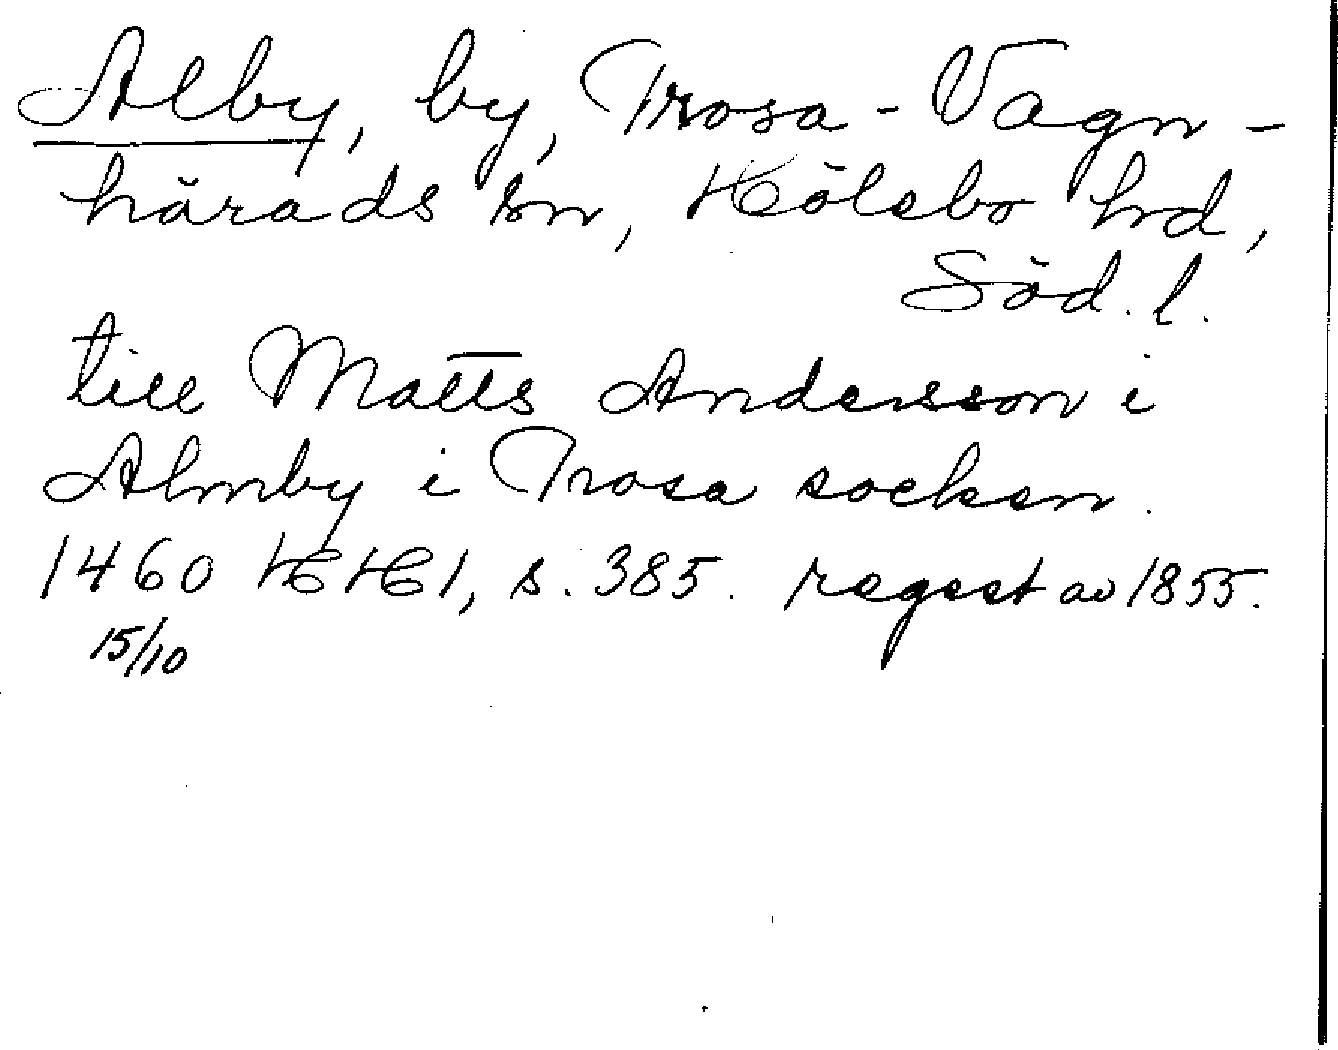 Alby, by, Trosa-Vagn-
härads sn, Hölebo hrd,
Söd. l.
till Matts Andersson i
Almby i Trosa socken.
1460 HH1, s. 385. regest av 1855.
15/10